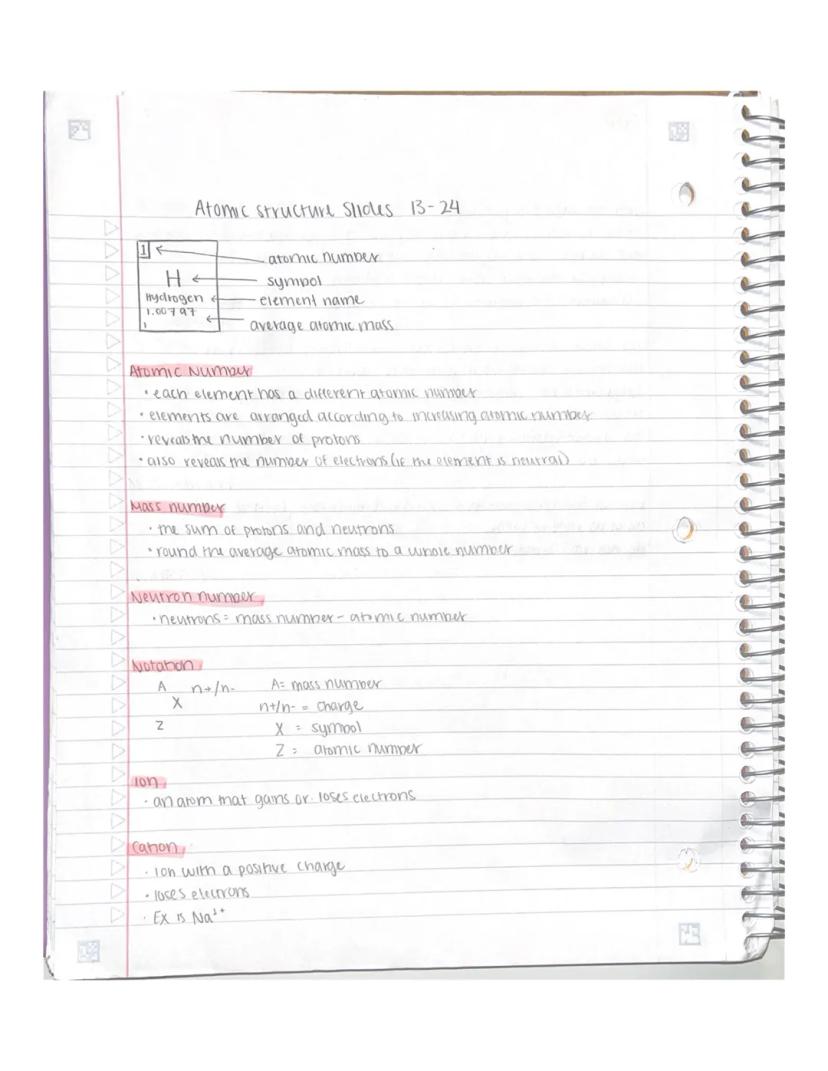 Atomic structure Slides 13-24
1
atomic number
H
symbol
Hydrogen
element name
1.00797
average atomic mass
1
Atomic Number
· each element has a different atomic number
· elements are arranged according to increasing atomic number
· reveals the number of protons
· also reveals the number of electrons (if the element is neutral)
Mass number
· the sum of protons and neutrons
· round the average atomic mass to a whole number
Neutron number
· neutrons = mass number - atomic number
Notation
A n+/n- A= mass number
X n+/n- = charge
Z X = symbol
Z = atomic number
Ion
· an atom that gains or loses electrons
Cation
· Ion with a positive charge
· loses electrons
· Ex is Na¹⁺